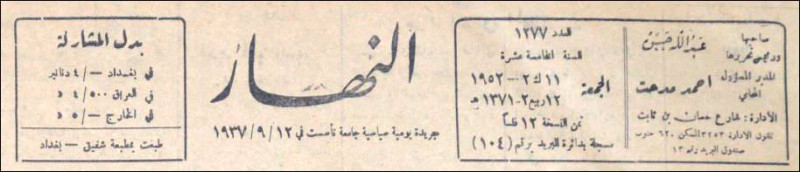 صاحبها
ورئيس تحريرها
عبدالله حسن
المدير المسؤول
المحامي
احمد مدحت
الادارة : شارع حسان بن ثابت
تلفون الادارة ٣٢٥٣ السكن ٦٢٠ جنوب
صندوق البريد رقم ١٣
العدد ١٢٧٧
السنة الخامسة عشرة
الجمعة
١١ ك٢ — ١٩٥٢
١٢ ربيع٢ - ١٣٧١ هـ
ثمن النسخة ١٢ فلساً
مسجلة بدائرة البريد برقم (١٠٤)
النهار
جريدة يومية سياسية جامعة تأسست في ١٢ /٩ /١٩٣٧
بدل المشاركة
في بغداد —/٤ دنانير
في العراق ٤/٥٠٠ د
في الخارج —/٥ د
طبعت بمطبعة شفيق — بغداد